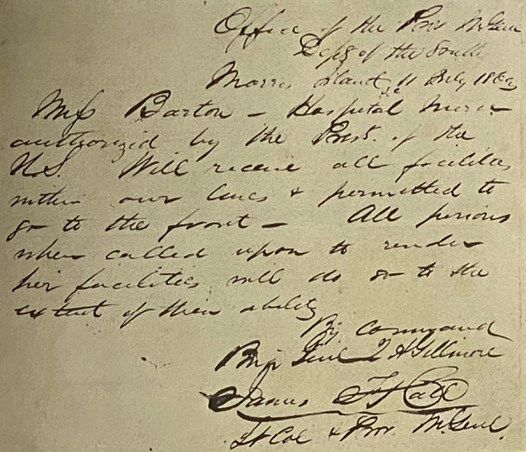 Office of the Prov M Genl
Dept of the South
Morris Island, SC 11 July 1863
Miss Barton – Hospital Nurse
authorized by the Prest. of the
U.S. Will receive all facilities
within our lines & permitted to
go to the front – All persons
when called upon to render
her facilities will do so to the
extent of their ability
By command
Brig Genl Q A Gillmore
James F Hall
Lt Col & Prov. M. Genl.